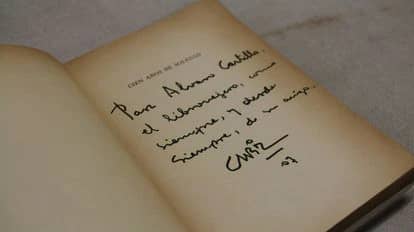 CIEN AÑOS DE SOLEDAD
Para Alvaro Castillo,
el librovejero, como
siempre, y desde
siempre, de su amigo.
GABO
07